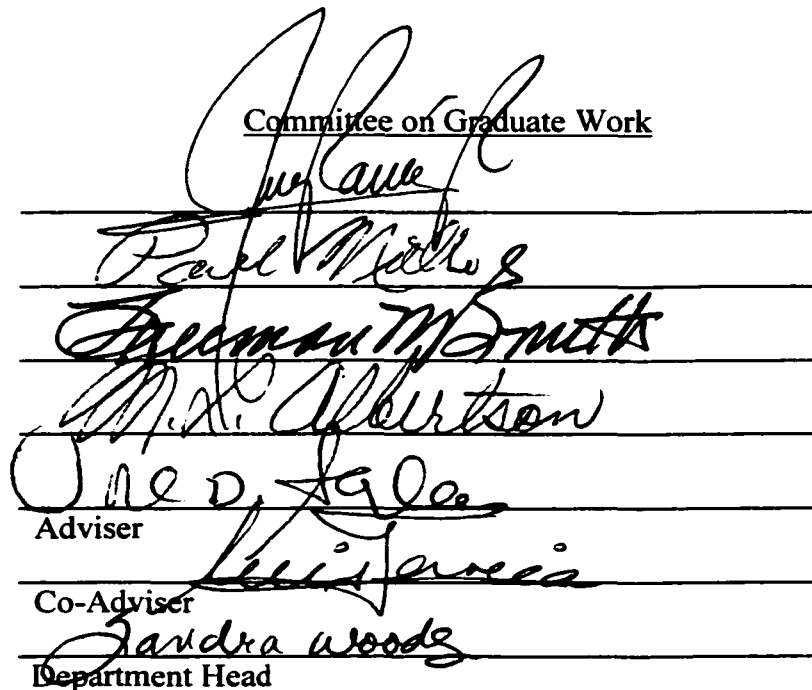 Committee on Graduate Work
Paul
Freeman M. Smith
M.L. Albertson
D.
Adviser
Luis Garcia
Co-Adviser
Sandra Woods
Department Head